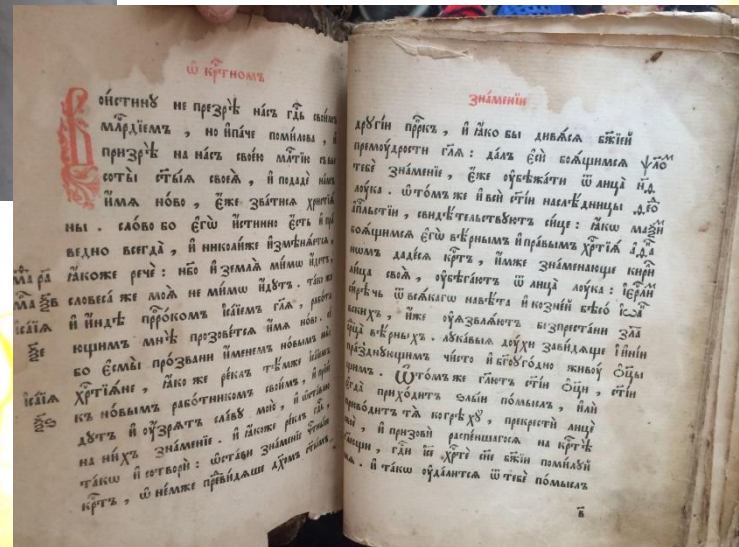 ѿ кр҃тномъ
Воистинꙋ не презрѣ насъ гдⷭ҇ь своимъ
млⷭ҇рдїемъ , но и҆паче поми́лова , и҆
призрѣ̀ на на́съ свое́ю млⷭ҇тїю съ вы
соты̀ ст҃ы́ѧ своеѧ̀ , и҆ подадѐ на́мъ
и҆́мѧ но́во , є҆́же зва́тисѧ христїѧ́
ны . сло́во бо є҆гѡ̀ и҆́стинно є҆́сть и҆ пра
ведно всегда̀ , и҆ николи́же и҆змѣнѧ́етсѧ ,
ꙗ҆́коже речѐ : нб҃о и҆ землѧ̀ ми́мѡ и҆́детъ ,
словеса́ же моѧ̀ не ми́мѡ и҆дꙋ́тъ . та́ко же
и҆ и҆ндѣ̀ прⷪ҇ро́комъ и҆са́їемъ гл҃ѧ , рабо́та
ющимъ мнѣ̀ прозове́тсѧ и҆́мѧ но́во . се́
бо є҆смы̀ про́звани и҆́менемъ но́вымъ
хрⷭ҇тїѧ́не , ꙗ҆́ко же ре́клъ тѣ́мже и҆са́їемъ
къ но́вымъ рабо́тникомъ свои́мъ , и҆ прїи
дꙋ́тъ и҆ оу҆́зрѧтъ сла́вꙋ мою̀ , и҆ ѡ҆ста́влю
на ни́хъ зна́менїе . и҆ ꙗ҆́коже ре́клъ гдⷭ҇ь ,
та́кѡ и҆ сотворѝ : ѡ҆ста́ви зна́менїе
крⷭ҇тъ , ѡ҆ не́мже преви́дѧше дх҃омъ ст҃ы́мъ
зна́менїи
дрꙋгі́и прⷪ҇ркъ , и҆ ꙗ҆́ко бы дивѧ́сѧ бж҃їей
премоу́дрости гл҃ѧ : да́лъ є҆сѝ боѧ́щимсѧ
тебѐ зна́менїе , є҆́же оу҆бѣжа́ти ѿ лица̀
лоу́ка . ѡ҆то́мъ же и҆ всѝ ст҃і́и наслѣ́дницы
а҆пⷭ҇льстїи , свидѣ́тельствꙋютъ си́це : ꙗ҆́кѡ
боѧ́щимсѧ є҆гѡ̀ вѣ́рнымъ и҆ пра́вымъ хрⷭ҇тїѧ́
номъ даде́сѧ крⷭ҇тъ , и҆́мже зна́менающе
лица̀ своѧ̀ , оу҆бѣга́ютъ ѿ лица̀ лоу́ка :
си́рѣчь ѿ всѧ́кагѡ навѣ́та и҆ ко́зней бѣсо́
вскихъ , и҆̀же оу҆ѧзвлѧ́ютъ безпреста́ни
срⷣца вѣ́рныхъ . лꙋка́выѧ дꙋ́хи зави́дѧще
пра́зднꙋющимъ чи́сто и҆ бг҃оуго́дно живоу́
щимъ . Ѡ҆то́мъ же гл҃ютъ ст҃і́и ѻ҆ц҃ы̀ ,
є҆гда̀ прихо́дитъ ѕлы́и по́мыслъ , и҆лѝ
приво́дитъ тѧ̀ ко грѣхꙋ̀ , прекрестѝ лицѐ
своѐ , и҆ призовѝ распе́ншагосѧ на крⷭ҇тѣ̀
гл҃ющи , гдⷭ҇и і҆с҃е хрⷭ҇тѐ сн҃е бж҃їи поми́лꙋй
мѧ . и҆ та́кѡ оу҆дали́тсѧ ѿ тебѐ по́мыслъ
в҃